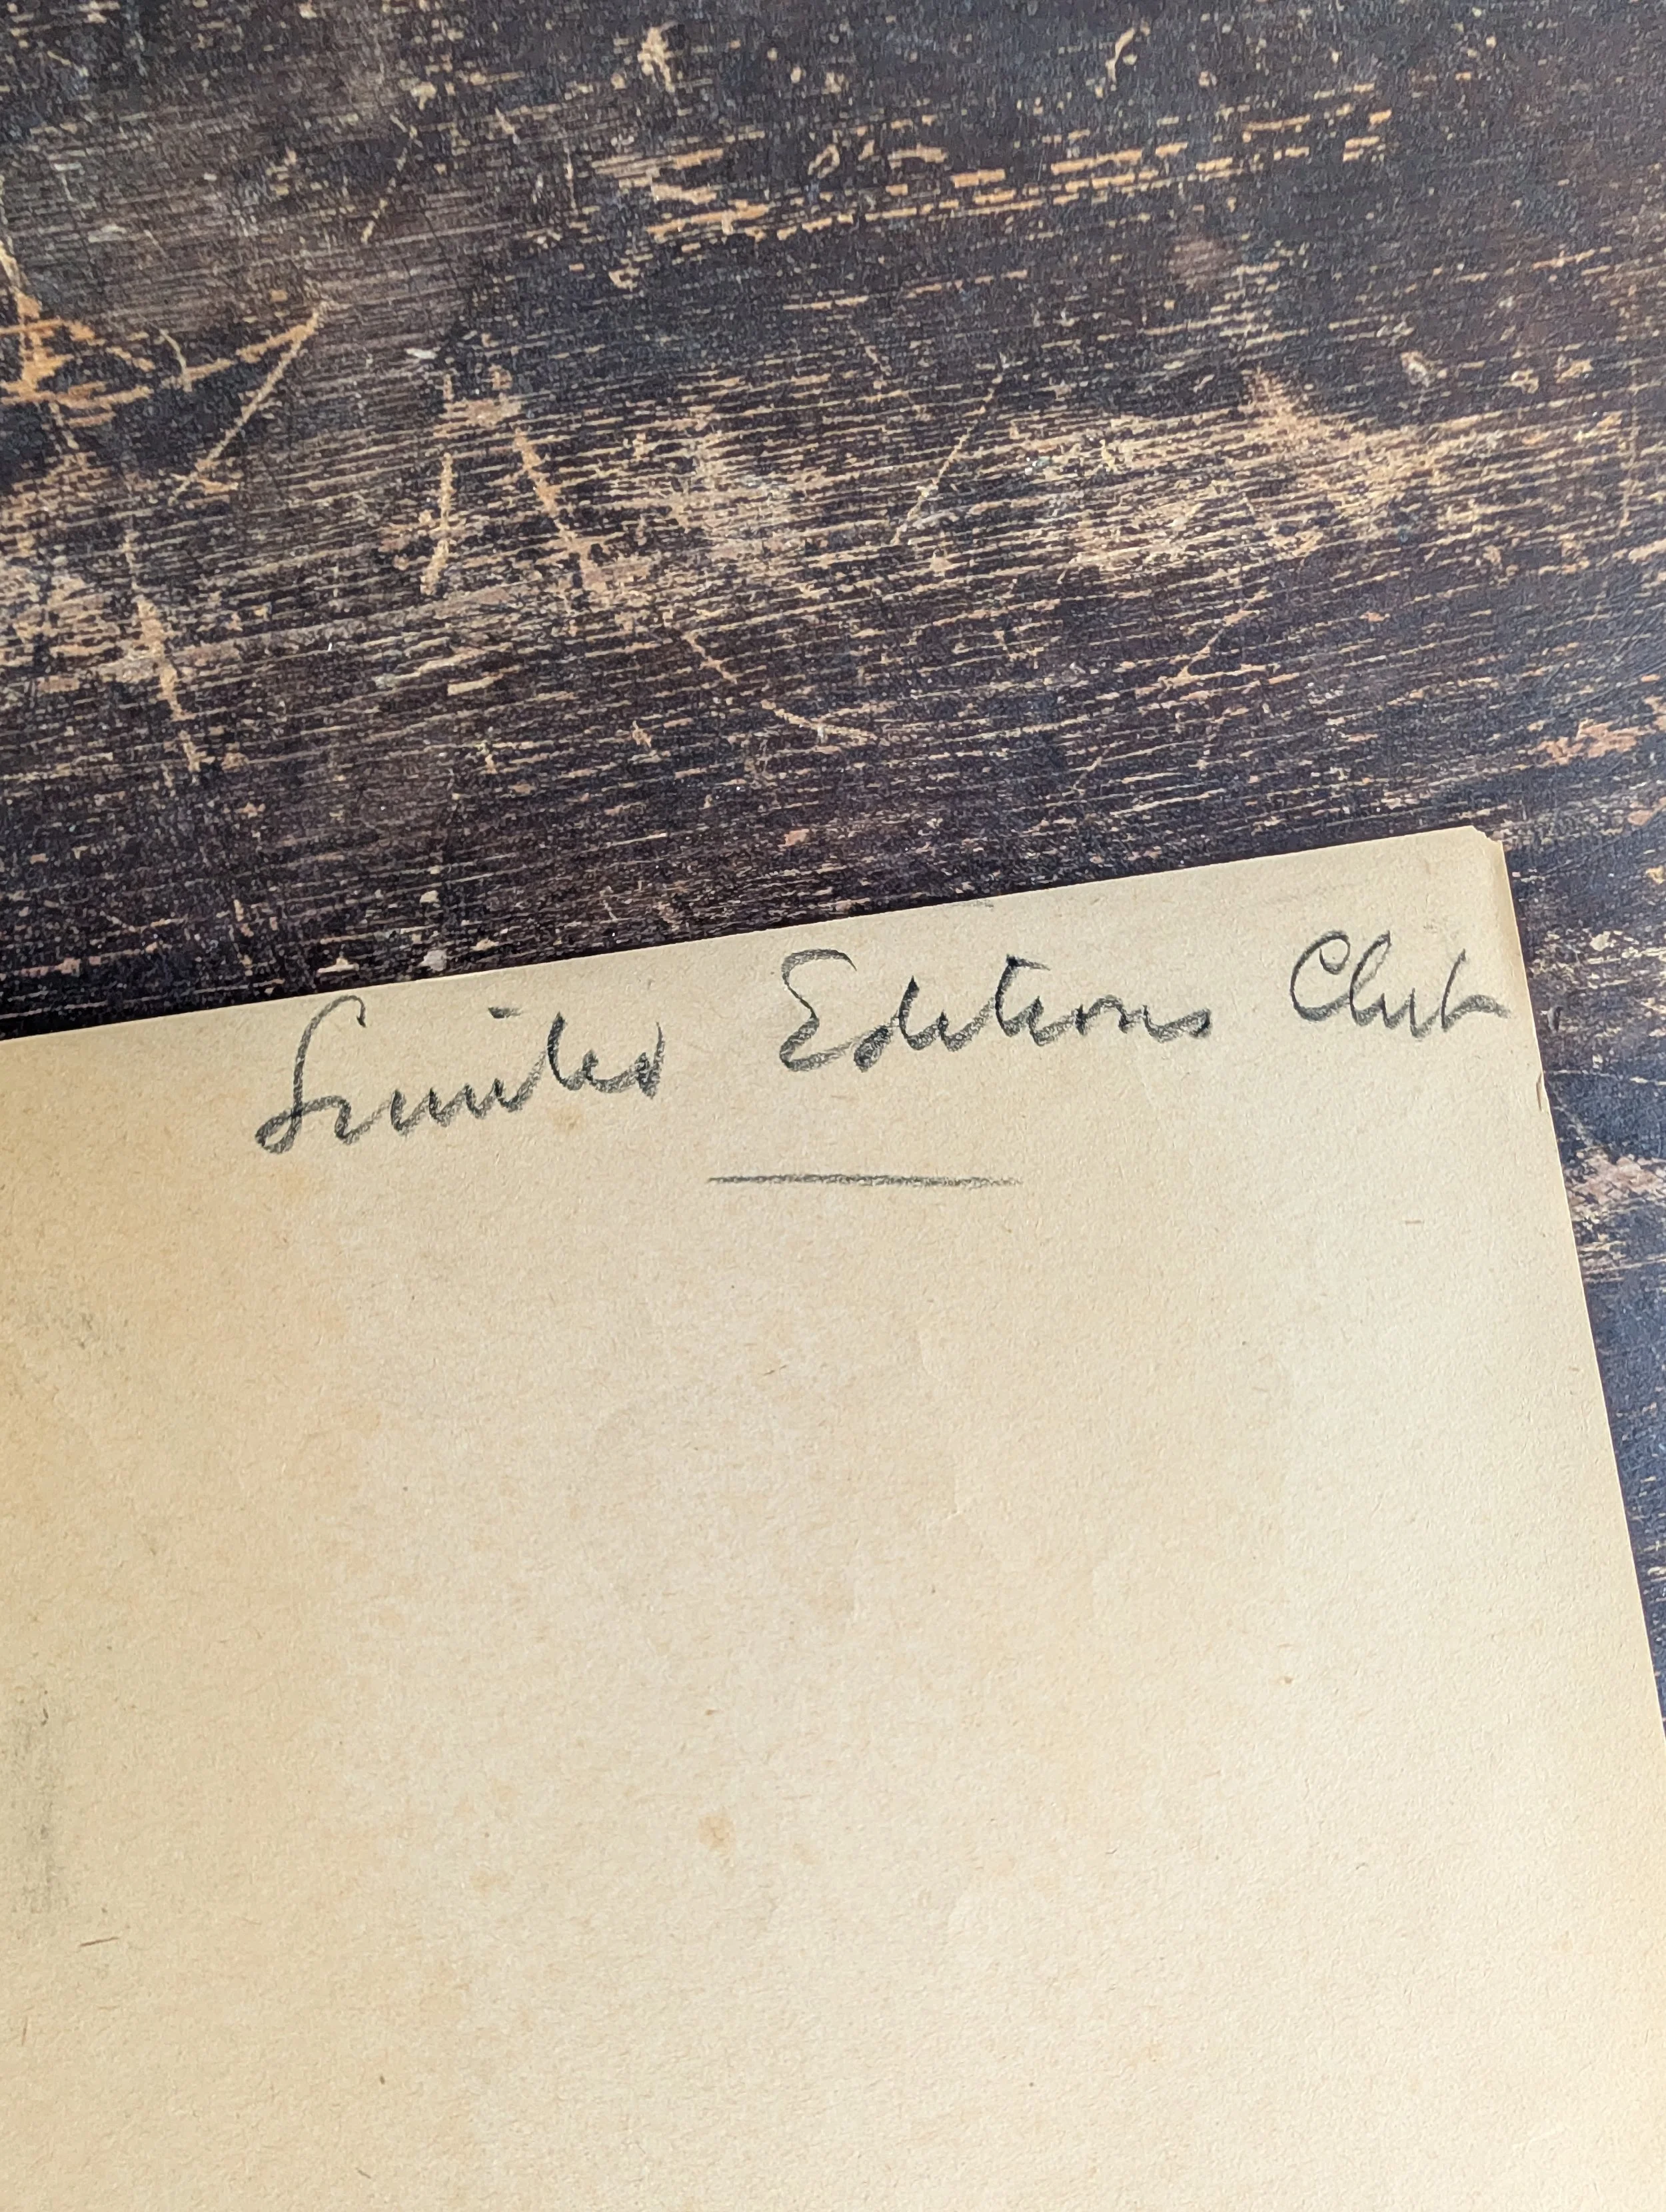 Limited Editions Club